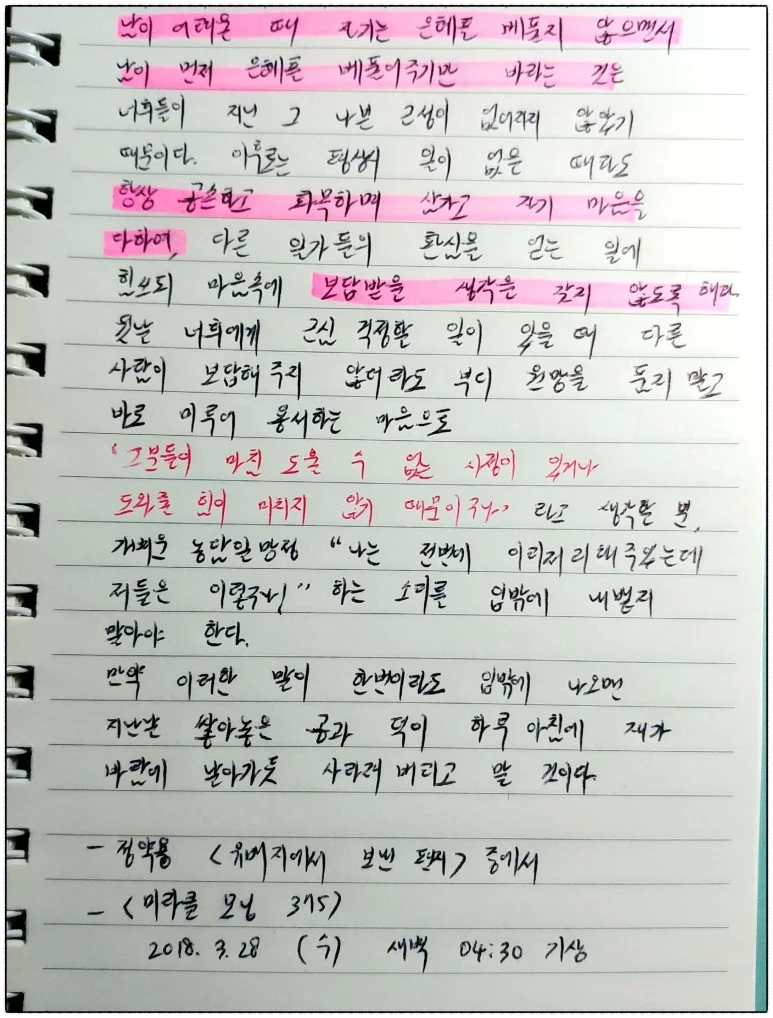 남이 어려울 때 자기는 은혜를 베풀지 않으면서
남이 먼저 은혜를 베풀어주기만 바라는 것은
너희들이 지닌 그 나쁜 근성이 없어지지 않았기
때문이다. 이후로는 평상시 일이 없을 때라도
항상 공손하고 화목하며 삼가고 자기 마음을
다하여, 다른 일가들의 환심을 얻는 일에
힘쓰되 마음속에 보답받을 생각을 갖지 않도록 해라.
훗날 너희에게 근심 걱정할 일이 있을 때 다른
사람이 보답해 주지 않더라도 부디 원망을 품지 말고
바로 미루어 용서하는 마음으로
"그분들이 마침 도울 수 없는 사정이 있거나
도와줄 힘이 미치지 않기 때문이구나" 라고 생각할 뿐,
가벼운 농담일망정 "나는 전번에 이리저리 해주었는데
저들은 이렇구나!" 하는 소리를 입밖에 내뱉지
말아야 한다.
만약 이러한 말이 한번이라도 입밖에 나오면
지난날 쌓아놓은 공과 덕이 하루 아침에 재가
바람에 날아가듯 사라져 버리고 말 것이다.
- 정약용 <유배지에서 보낸 편지> 중에서
- <미라클 모닝 375>
2018. 3. 28 (수) 새벽 04:30 기상